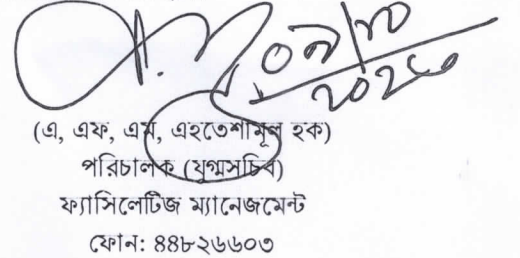 ০৭/১০
২০২৫
(এ, এফ, এম, এহতেশামূল হক)
পরিচালক (যুগ্মসচিব)
ফ্যাসিলেটিজ ম্যানেজমেন্ট
ফোন: ৪৪৮২৬৬০৩